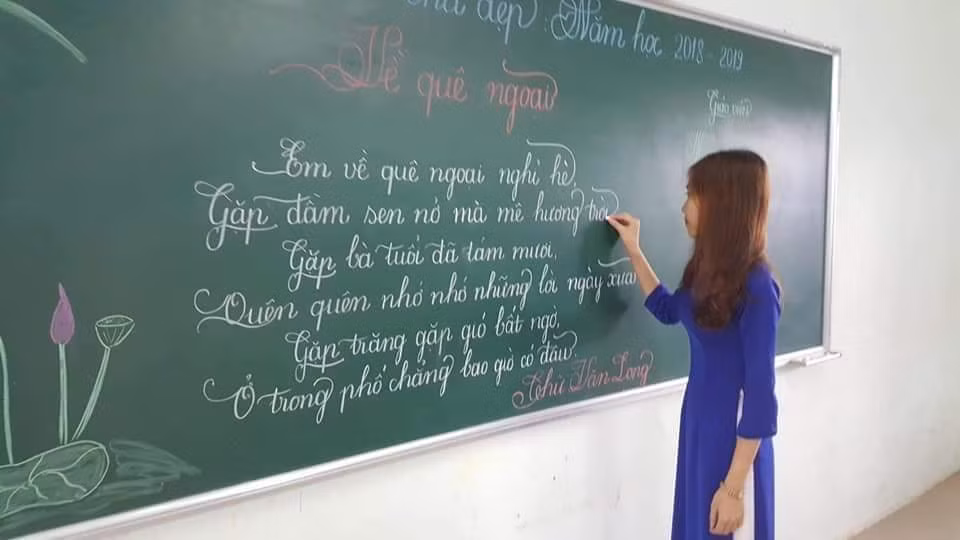 chữ đẹp : Năm học 2018 - 2019
Về quê ngoại
Giáo viên
Em về quê ngoại nghỉ hè,
Gặp đầm sen nở mà mê hương trời
Gặp bà tuổi đã tám mươi,
Quên quên nhớ nhớ những lời ngày xưa
Gặp trăng gặp gió bất ngờ,
Ở trong phố chẳng bao giờ có đâu.
Chử Văn Long